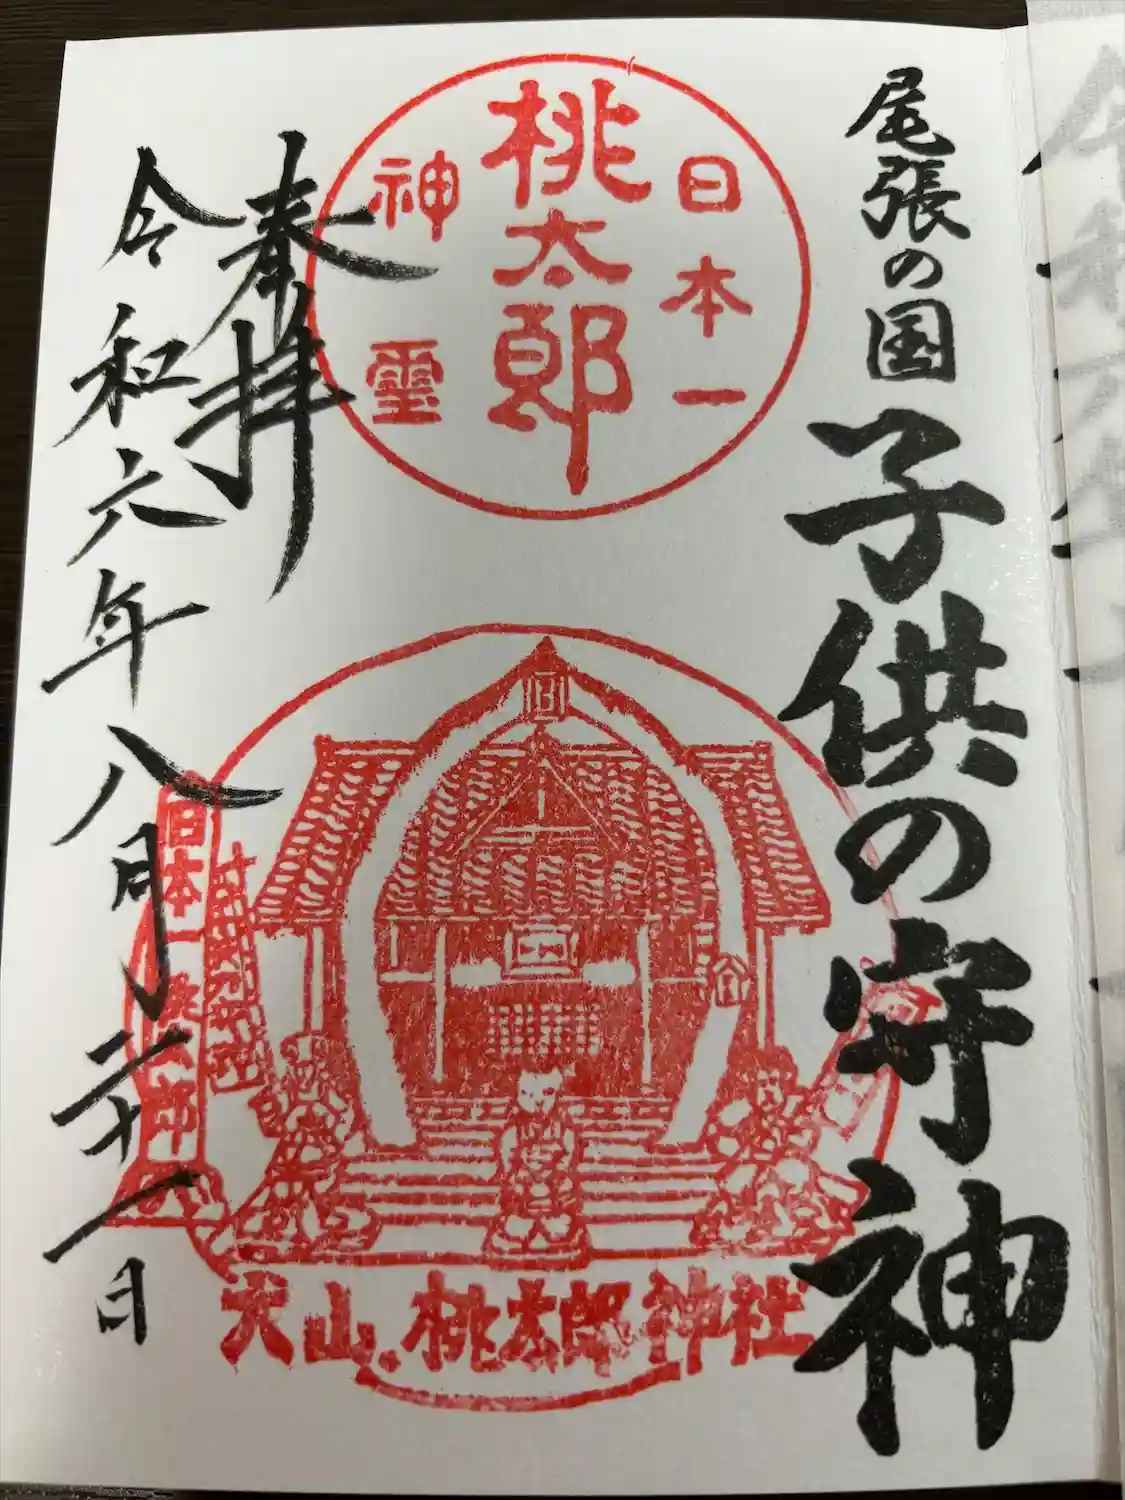 尾張の国
子供の守神
日本一
桃太郎
神霊
奉拝
令和六年八月二十一日
日本一桃太郎
犬山.桃太郎神社